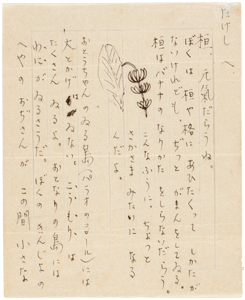 たけし へ
桓、元気だらうね。
ぼくは 桓や格に あひたくって しかたが
ないけれども、ぢっと がまんをしてゐる。
桓は バナナの なりかた を しらないだらう。
こんなふうに、ちょっと
さかさま みたいに なる
んだよ。
おとうちゃんの ゐる 島(パラオの コロール)には
大とかげは ゐないし、こうもり は
たくさん ゐるよ。おとなりの 島には
わにが ゐるさうだ。ぼくの きんじょの
へやの おぢさんが この間 小さな